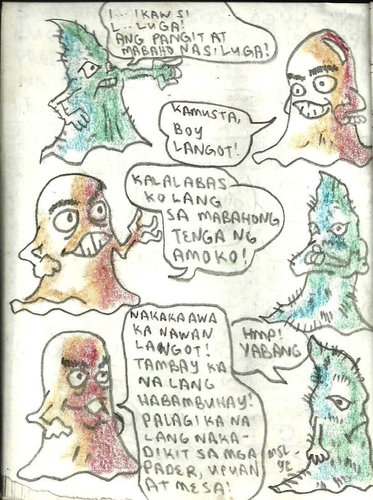 I... IKAW SI
L...LUGA!
ANG PANGIT AT
MABAHO NA SI LUGA!
KAMUSTA,
BOY
LANGOT!
KALALABAS
KO LANG
SA MABAHONG
TENGA NG
AMO KO!
NAKAKAAWA
KA NAWAN
LANGOT!
TAMBAY KA
NA LANG
HABAMBUHAY!
PALAGI KA NA
LANG NAKA-
DIKIT SA MGA
PADER, UPUAN
AT MESA!
HMP!
YABANG